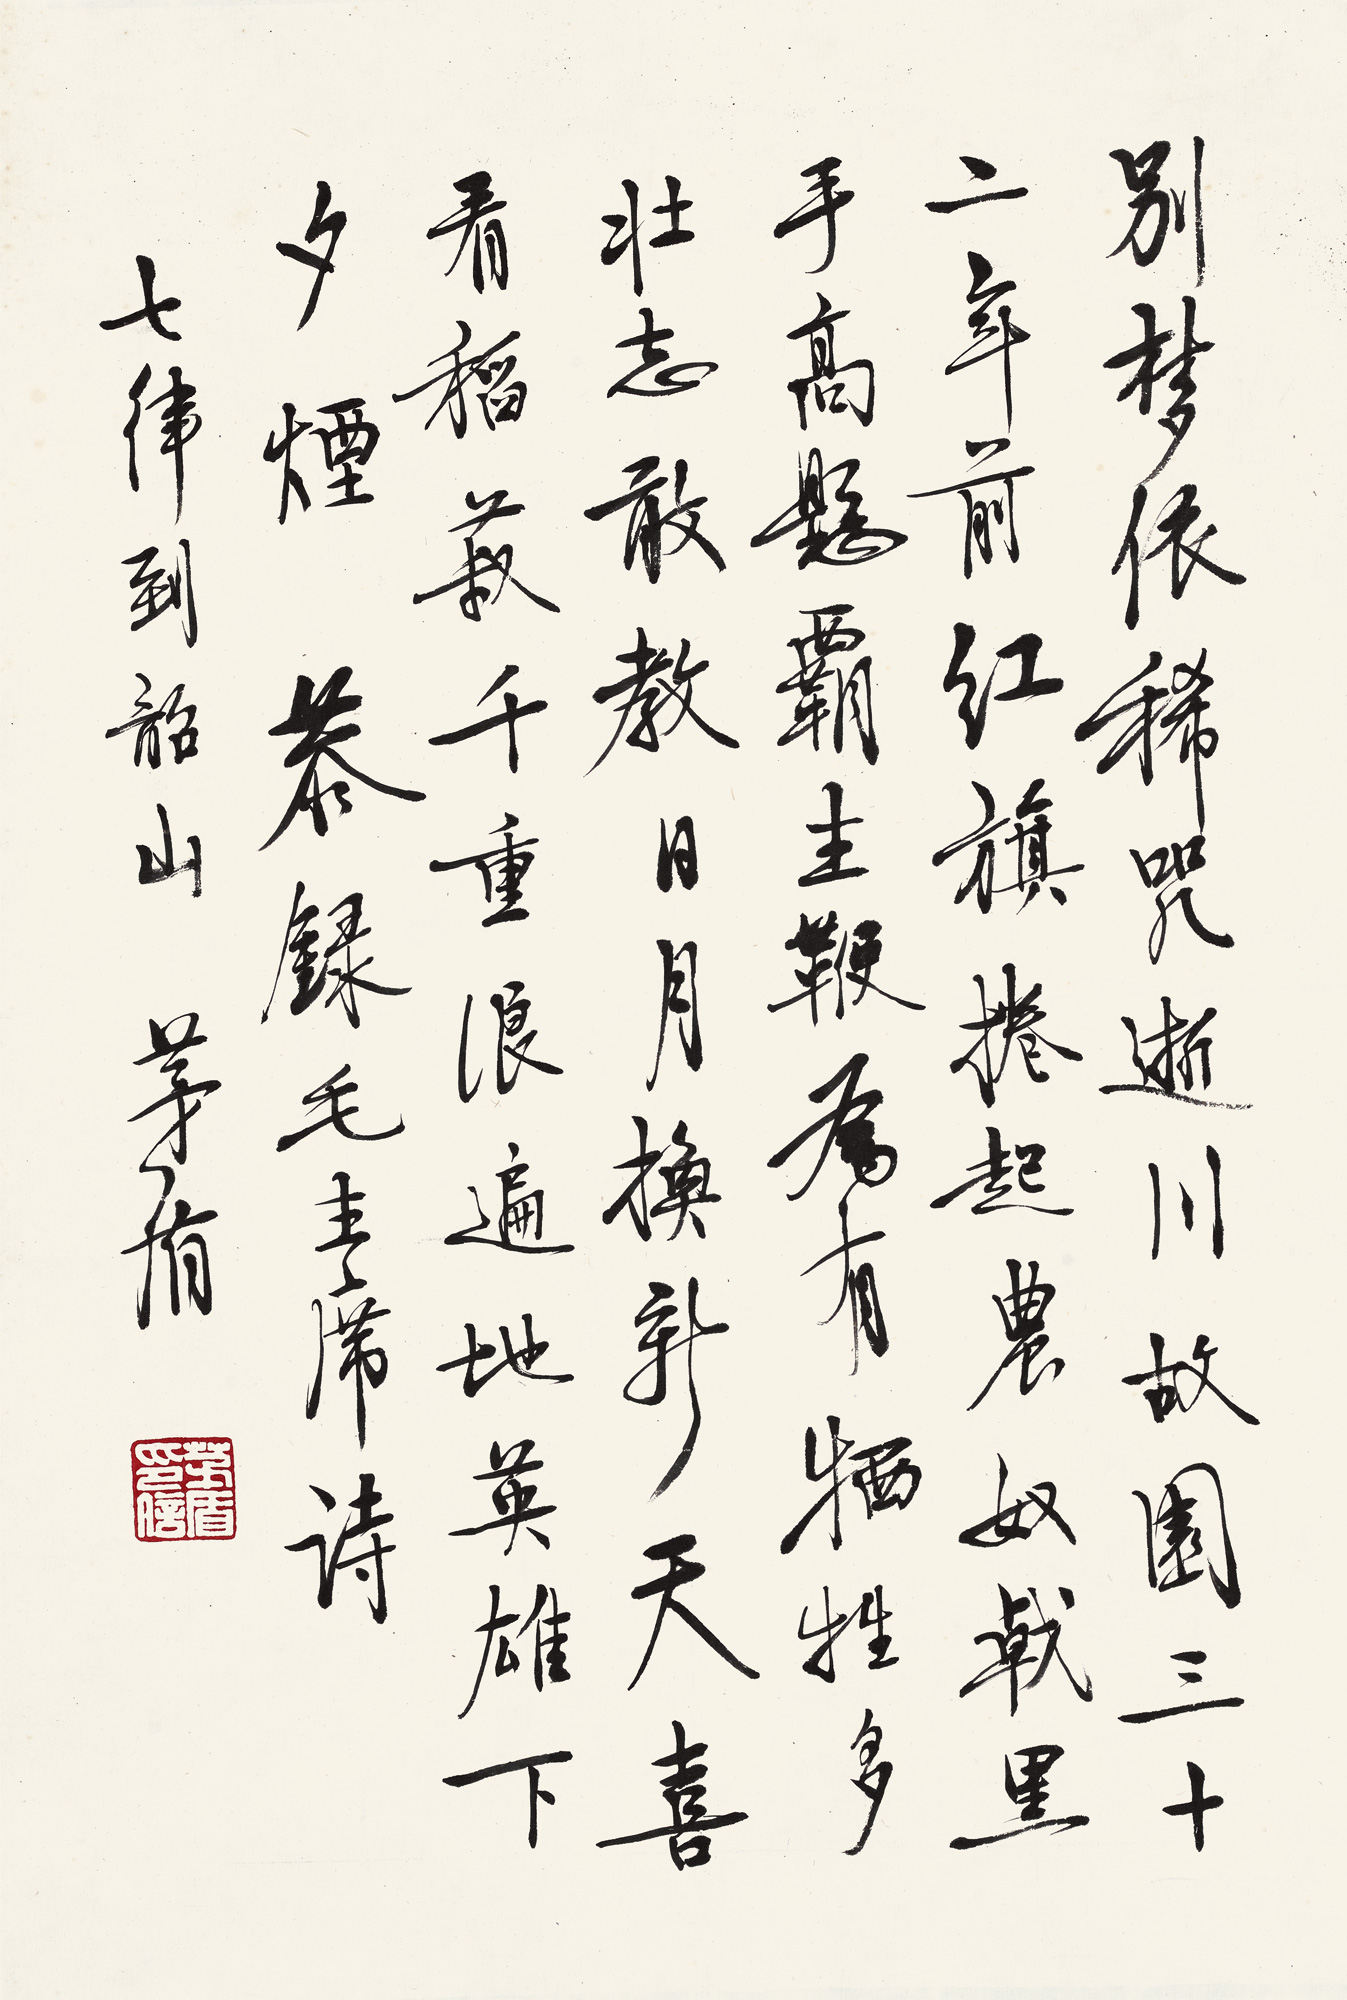 别梦依稀咒逝川故園三十
二年前红旗捲起農奴戟黑
手高懸霸主鞭為有犧牲多
壮志敢教日月換新天喜
看稻菽千重浪遍地英雄下
夕煙 恭錄毛主席诗
七律到韶山 茅盾
茅盾印信